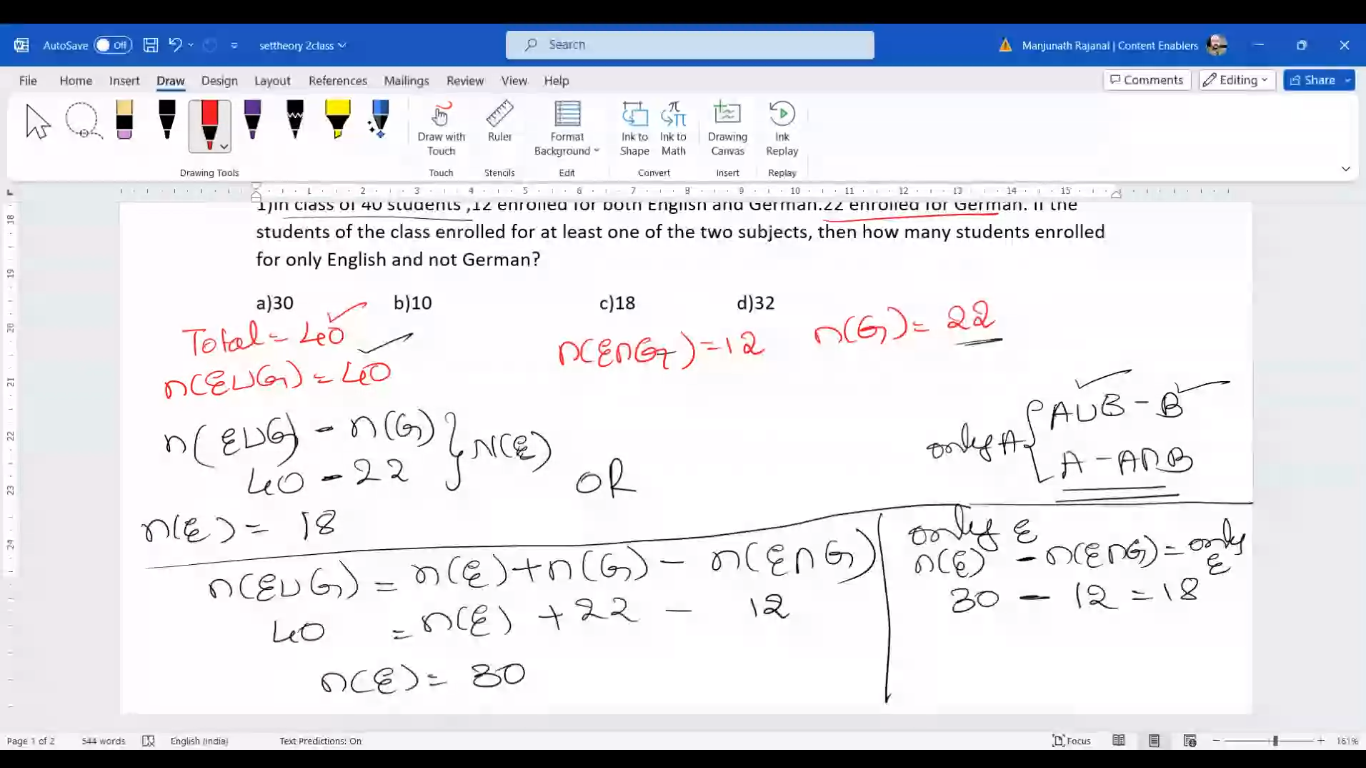 AutoSave Off settheory 2class Search Manjunath Rajanal | Content Enablers
File Home Insert Draw Design Layout References Mailings Review View Help Comments Editing Share
Draw with Touch Ruler Format Background Ink to Shape Ink to Math Drawing Canvas Ink Replay
Drawing Tools Touch Stencils Edit Convert Insert Replay
1 2 3 4 5 6 7 8 9 10 11 12 13 14 15
18
19
20
21
22
23
24
1)In class of 40 students ,12 enrolled for both English and German.22 enrolled for German. If the
students of the class enrolled for at least one of the two subjects, then how many students enrolled
for only English and not German?
a)30 b)10 c)18 d)32
Total = 40 n(E∩G) = 12 n(G) = 22
n(E∪G) = 40
n(E∪G) - n(G) } N(E)
40 - 22
OR
only A { A∪B - B
A - A∩B
n(E) = 18
n(E∪G) = n(E) + n(G) - n(E∩G)
40 = n(E) + 22 - 12
n(E) = 30
only E
n(E) - n(E∩G) = only E
30 - 12 = 18
Page 1 of 2 544 words English (India) Text Predictions: On Focus 161%